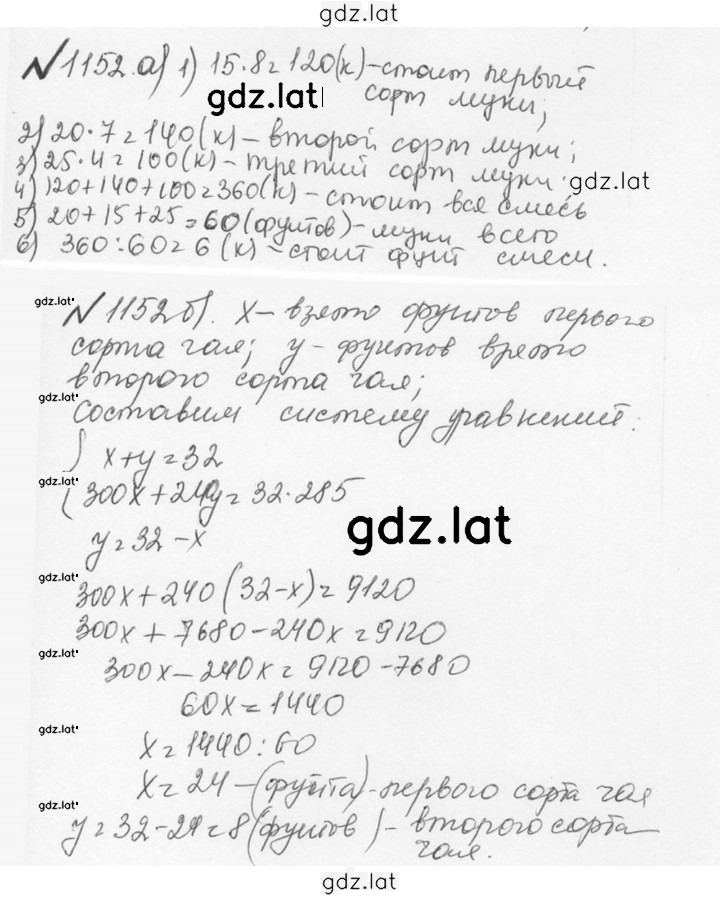 gdz.lat
№1152.а) 1) 15·8=120(к)-стоит первый
gdz.lat
сорт муки;
2) 20·7=140(к)-второй сорт муки;
3) 25·4=100(к)-третий сорт муки.
gdz.lat
4) 120+140+100=360(к)-стоит вся смесь
5) 20+15+25=60(фунтов)-муки всего
6) 360:60=6(к)-стоит фунт смеси.
gdz.lat
№1152б). х-взято фунтов первого
сорта чая; у-фунтов взято
второго сорта чая;
gdz.lat
Составим систему уравнений:
х+у=32
gdz.lat
300х+240у=32·285
gdz.lat
у=32-х
gdz.lat
300х+240(32-х)=9120
300х+7680-240х=9120
gdz.lat
300х-240х=9120-7680
60х=1440
gdz.lat
х=1440:60
х=24-(фунта)-первого сорта чая
gdz.lat
у=32-24=8(фунтов)-второго сорта
чая.
gdz.lat